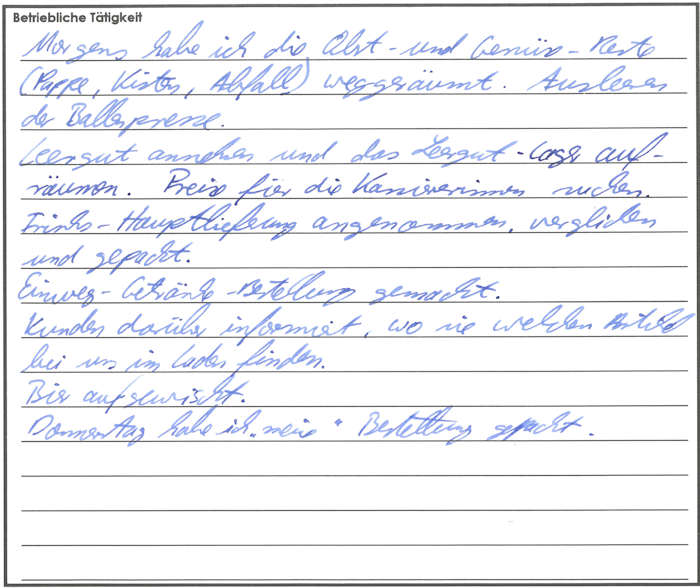 Betriebliche Tätigkeit
Morgens habe ich die Obst- und Gemüse-Reste
(Pappe, Kisten, Abfall) weggeräumt. Ausleeren
der Ballenpresse.
Leergut annehmen und das Leergut-Lager auf-
räumen. Preise für die Kassiererinnen suchen.
Frisch-Hauptlieferung angenommen, verglichen
und gepackt.
Einweg-Getränke-Bestellung gemacht.
Kunden darüber informiert, wo sie welchen Artikel
bei uns im Laden finden.
Bier aufgewischt.
Donnerstag habe ich „meine“ Bestellung gepackt.